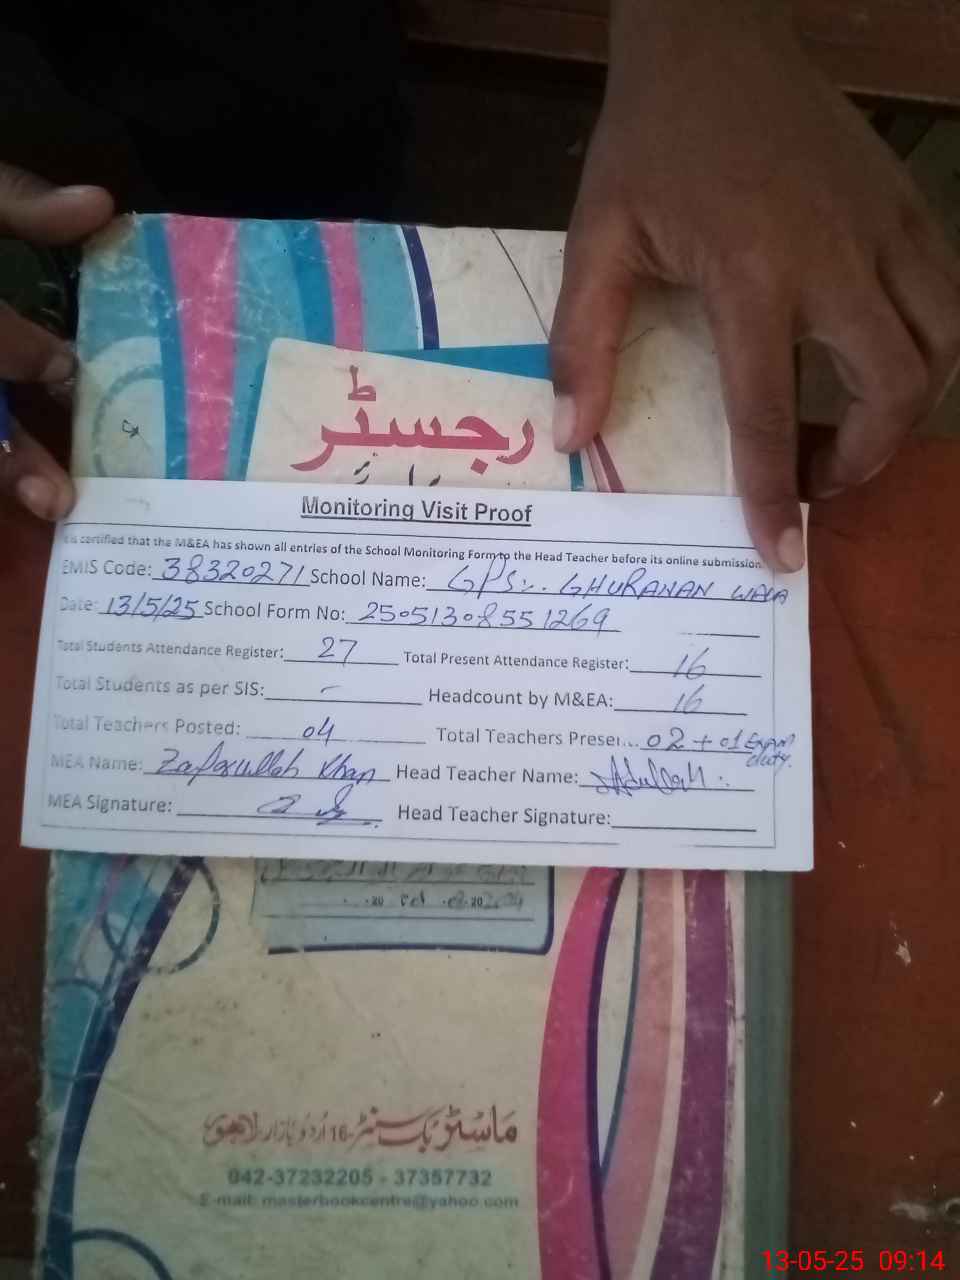 رجسٹر
Monitoring Visit Proof
It is certified that the M&EA has shown all entries of the School Monitoring Form to the Head Teacher before its online submission.
EMIS Code: 38320271 School Name: GPS GHURANAN WALA
Date: 13/5/25 School Form No: 25051308551269
Total Students Attendance Register: 27 Total Present Attendance Register: 16
Total Students as per SIS: - Headcount by M&EA: 16
Total Teachers Posted: 04 Total Teachers Presei... 02 + 01 Exam duty.
MEA Name: Zafarullah Khan Head Teacher Name:
MEA Signature: Head Teacher Signature:
ماسٹر بک سنٹر 16 اُردو بازار لاہور
042-37232205 - 37357732
E-mail: masterbookcentre@yahoo.com
13-05-25 09:14